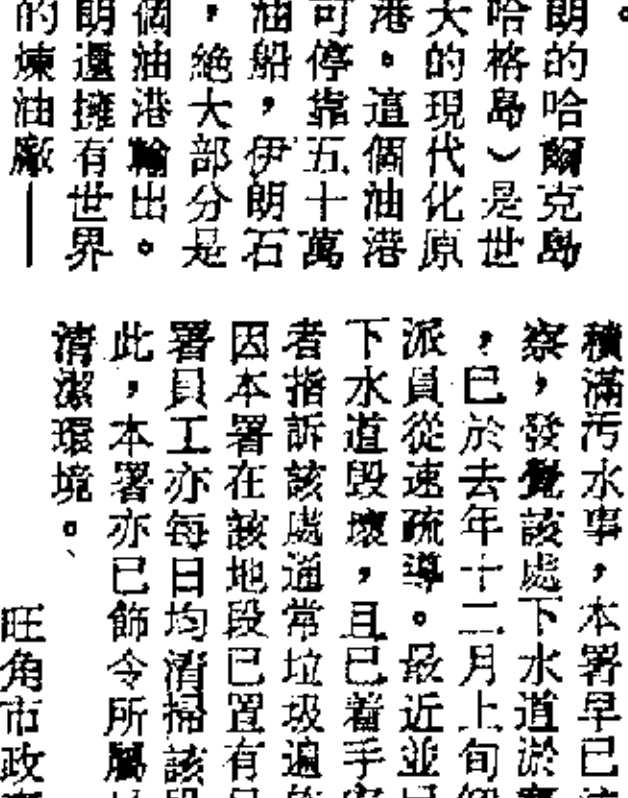 。
朗的哈爾克島
哈格島）是世
大的現代化原
港。這個油港
可停靠五十萬
油船，伊朗石
，絕大部分是
個油港輸出。
朗還擁有世界
的煉油廠——
積滿污水事，本署早已
察，發覺該處下水道淤
，已於去年十二月上旬
派員從速疏導。最近並
下水道毀壞，且已着手
者指訴該處通常垃圾遍
因本署在該地段已置有
署員工亦每日均清掃該
此，本署亦已飭令所屬
清潔環境。
旺角市政